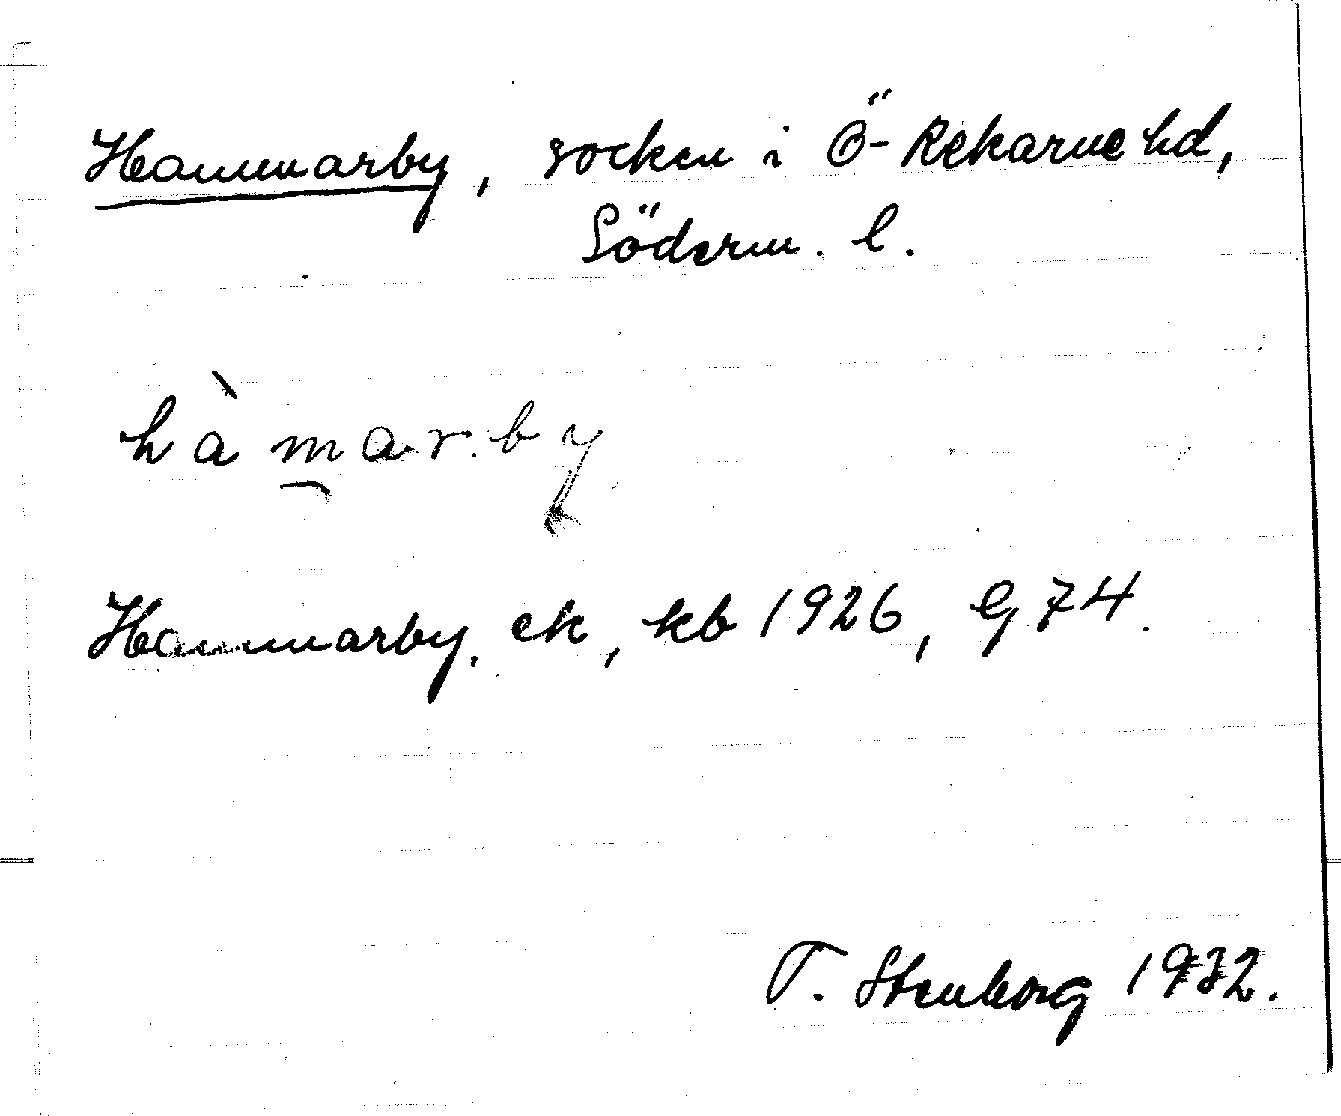 Hammarby, socken i Ö-Rekarne hd,
Söderm. l.
hàmarby
Hammarby, ek, kb 1926, G 74.
T. Stenborg 1932.